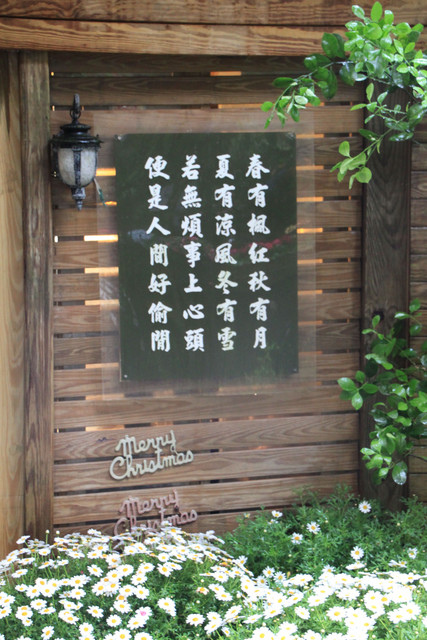 春有楓紅秋有月
夏有涼風冬有雪
若無煩事上心頭
便是人間好偷閒
Merry
Christmas
Merry
Christmas